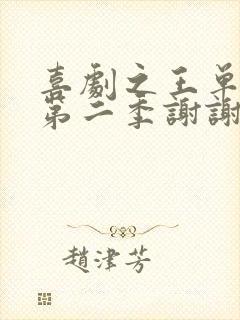 喜劇之王單
第二季謝謝
趙津芳